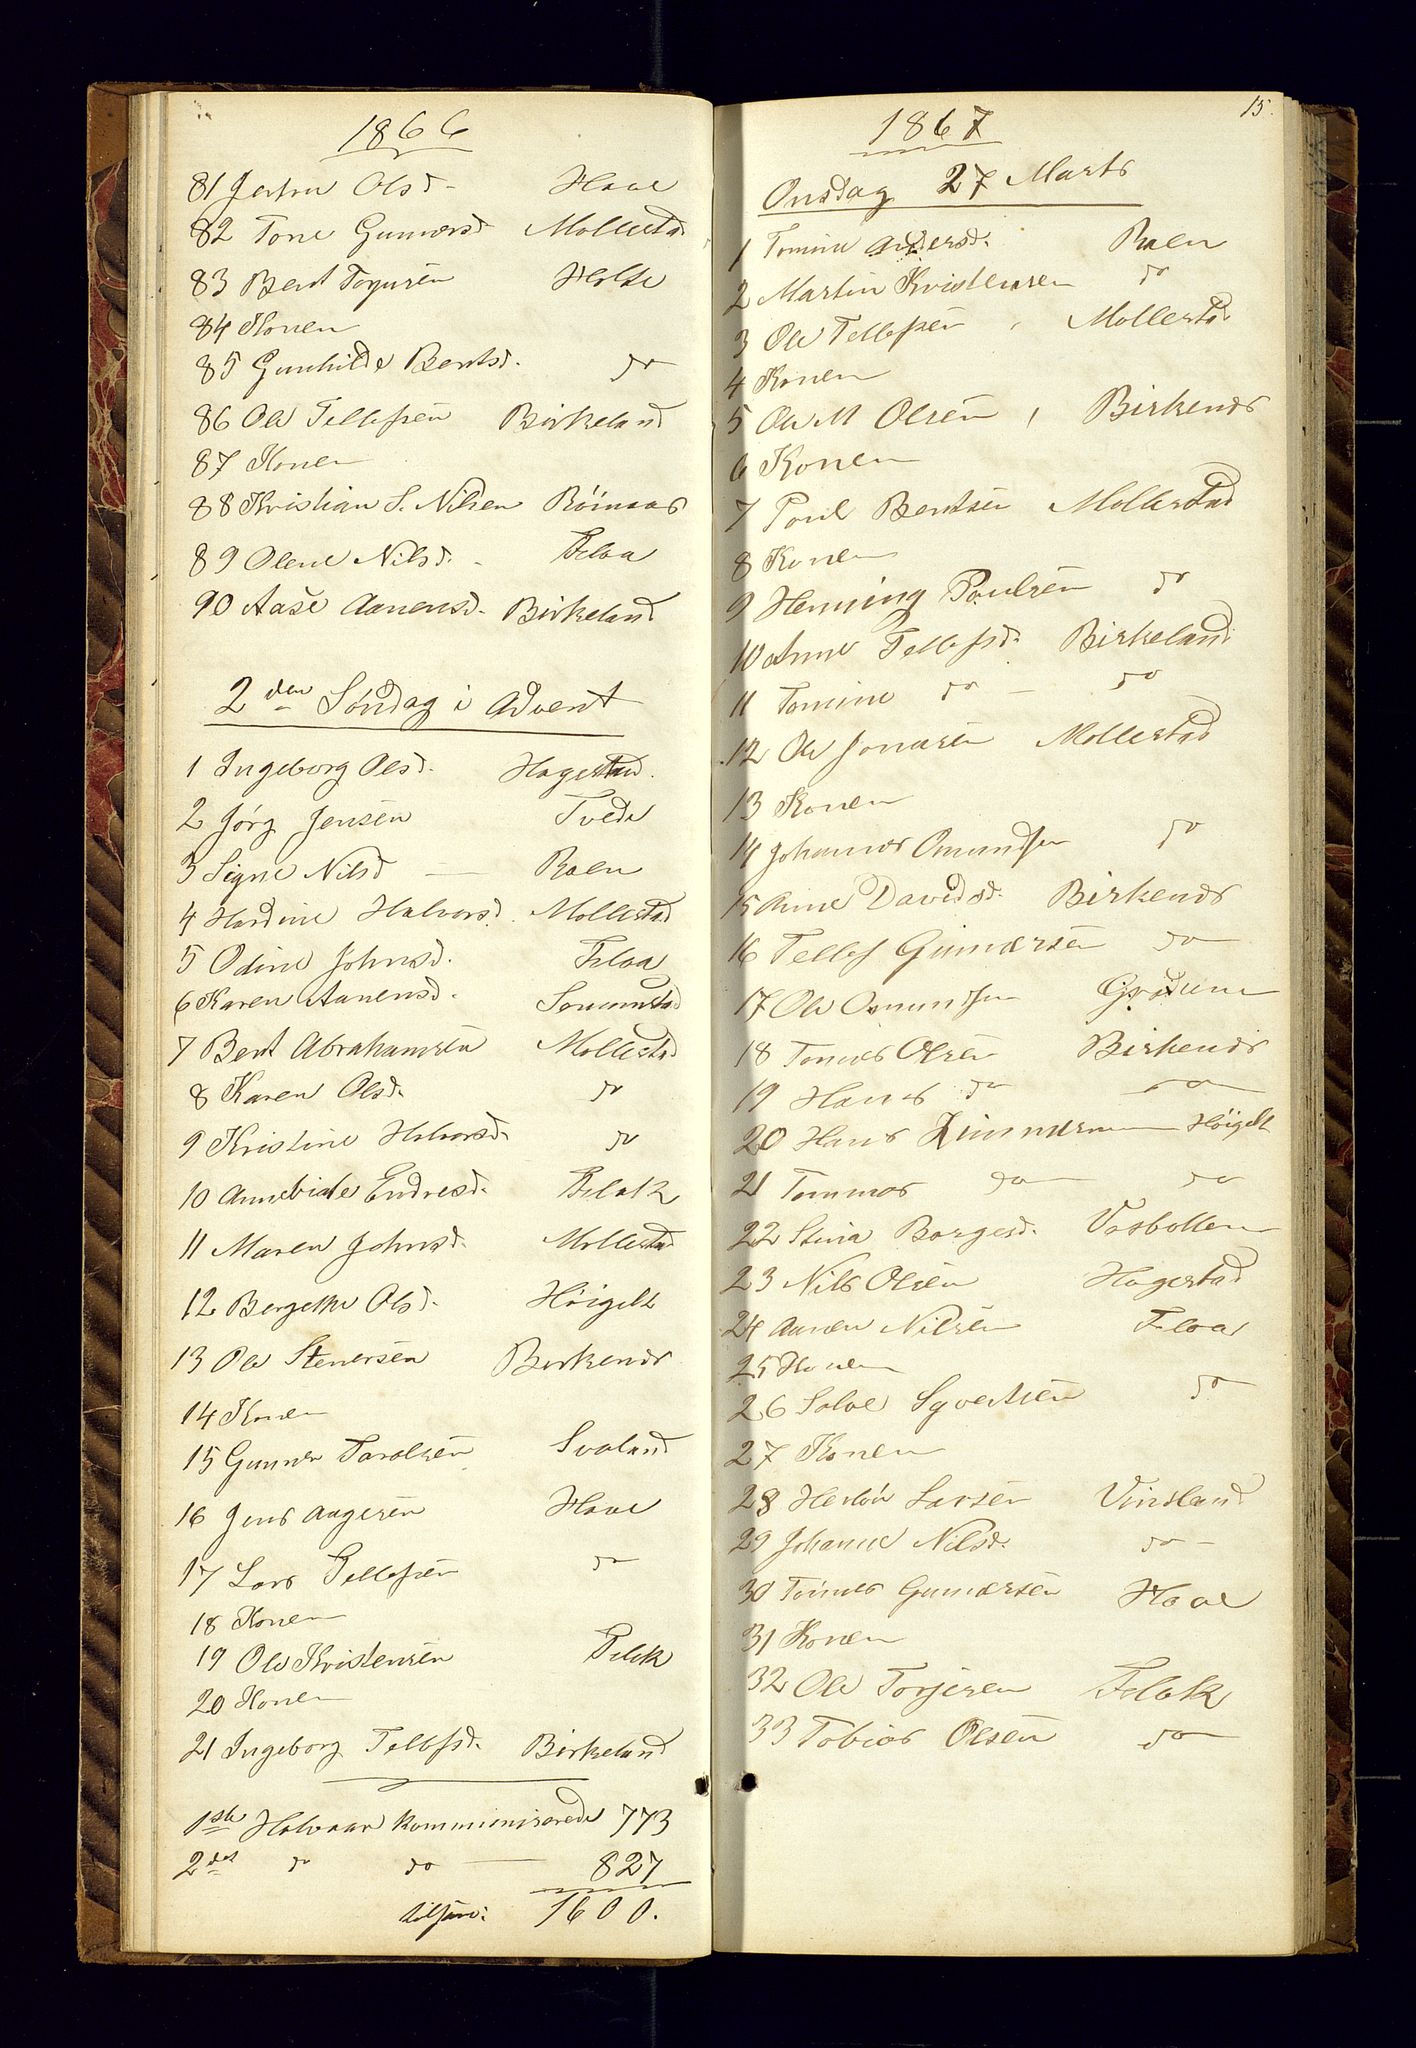 1866
81 Olsd. Haae
82 Tone Gunnersd. Mollestad
83 Bent Holte
84 Konen
85 Gunhilde Bentsd. do
86 Ole Tellefsen Birkeland
87 Konen
88 Kristian S. Nilsen
89 Olene Nilsd. Flaa
90 Aase Aanensd. Birkeland
2den Søndag i Advent
1 Ingeborg Olsd. Hagestad
2 Jørg Jensen Tvede
3 Signe Nilsd. Roen
4 Hardine Halvorsd. Mollestad
5 Odine Johnsd. Flaa
6 Karen Aanensd.
7 Bent Abrahamsen Mollestad
8 Karen Olsd. do
9 Kristine Halvorsd. do
10 Endresd. Flak
11 Maren Johnsd. Mollestad
12 Bergethe Olsd. Høigelt
13 Ole Stenersen Birkenes
14 Konen
15 Gunner Taralsen Svaland
16 Jens Aagesen Haae
17 Lars Tellefsen do
18 Konen
19 Ole Kristensen Flak
20 Konen
21 Ingeborg Tellefsd. Birkeland
1ste Halvaar kommunicerede 773
2det do do 827
tilsam: 1600.
15.
1867
Onsdag 27 Marts
1 Tomine Andersd. Roen
2 Martin Kristensen do
3 Ole Tellefsen, Mollestad
4 Konen
5 Ole M Olsen, Birkenes
6 Konen
7 Poul Bentsen Mollestad
8 Konen
9 Henning Poulsen do
10 Anne Tellefsd. Birkeland
11 Tomine do do
12 Ole Jonasen Mollestad
13 Konen
14 Johannes Omundsen do
15 Anne Davidsd. Birkenes
16 Tellef Gunnersen do
17 Ole Omundsen
18 Tomes Olsen Birkenes
19 Hans do do
20 Hans Høigelt
21 Tommas do do
22 Stina Borgesd. Vasbotten
23 Nils Olsen Hagestad
24 Aanen Nilsen Flaa
25 Konen
26 Salve Syvertsen do
27 Konen
28 Larsen Vinsland
29 Johanne Nilsd. do
30 Gunnersen Haae
31 Konen
32 Ole Torjesen Flak
33 Tobias Olsen do